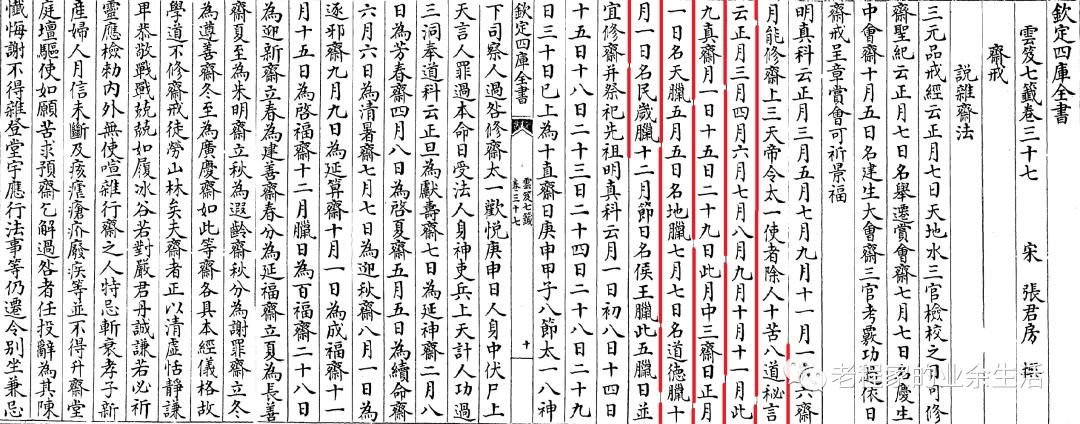 欽定四庫全書
雲笈七籤卷三十七 宋 張君房 撰
齋戒
說雜齋法
三元品戒經云正月七日天地水三官檢校之日可修
齋聖紀云正月七日名舉遷賞會齋七月七日名慶生
中會齋十月五日名建生大會齋三官考覈功過依日
齋戒呈章賞會可祈景福
明真科云正月三月五月七月九月十一月一 六齋
月能修齋上三天帝令太一使者除人十苦八道秘言
云正月三月四月六月七月八月九月十月十一月此
九真齋月一日十五日二十九日此月中三齋日正月
一日名天臘五月五日名地臘七月七日名道德臘十
月一日名民歲臘十二月節日名侯王臘此五臘日並
宜修齋并祭祀先祖明真科云月一日初八日十四日
十五日十八日二十三日二十四日二十八日二十九
日三十日已上為十直齋日庚申甲子八節太一八神
欽定四庫全書
雲笈七籤
卷三十七
十
下司察人過咎修齋太一歡悅庚申日人身中伏尸上
天言人罪過本命日受法人身神吏兵上天計人功過
三洞奉道科云正旦為獻壽齋七日為延神齋二月八
日為芳春齋四月八日為啓夏齋五月五日為續命齋
六月六日為清暑齋七月七日為迎秋齋八月一日為
逐邪齋九月九日為延算齋十月一日為成福齋十一
月十五日為啓福齋十二月臘日為百福齋二十八日
為迎新齋立春為建善齋春分為延福齋立夏為長善
齋夏至為朱明齋立秋為遐齡齋秋分為謝罪齋立冬
為遵善齋冬至為廣慶齋如此等齋各具本經儀格故
學道不修齋戒徒勞山林矣夫齋者正以清虛恬靜謙
卑恭敬戰戰兢兢如履冰谷若對嚴君丹誠謙若必祈
靈應檢勑內外無使喧雜行齋之人特忌斬衰孝子新
產婦人月信未斷及痎瘧瘡疥廢疾等並不得升齋堂
庭壇驅使如願苦求預齋乞解過咎者任投辭為其陳
懺悔謝不得雜登堂宇應行法事等仍遷令別坐兼忌
老赵家的业余生活